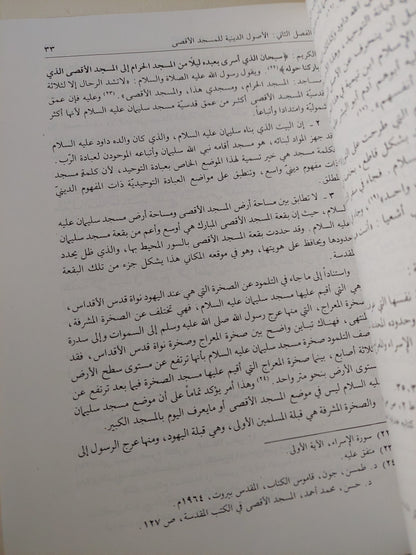 الفصل الثاني: الأصول الدينية للمسجد الأقصى ٣٣
الكريم: ﴿سبحان الذي أسرى بعبده ليلاً من المسجد الحرام إلى المسجد الأقصى الذي
باركنا حوله﴾(٢٢). ويقول رسول الله عليه الصلاة والسلام: «لاتشد الرحال إلا لثلاثة
مساجد: المسجد الحرام، ومسجدي هذا، والمسجد الأقصى»(٢٣). وعليه فإن عمق
قدسيّة المسجد الأقصى أكثر من عمق قدسيّة مسجد سليمان عليه السلام لأنها أكثر
شموليّة وامتداداً واتباعاً.
٢ ـ إن البيت الذي بناه سليمان عليه السلام، والذي كان والده داود عليه السلام
قد جهز المواد لبنائه، هو مسجد أقامه نبي الله سليمان وأتباعه الموحدون لعبادة الرّب.
كلمة مسجد هي خير تسمية لهذا الموضع الخاص بعبادة التوحيد، لأن كلمة مسجد
ذات مفهوم دينيّ واسع، وتنطبق على مواضع العبادة التوحيديّة ذات المفهوم الدينيّ
المطلق.
٣ ـ لا تطابق بين مساحة أرض المسجد الأقصى ومساحة أرض مسجد سليمان عليه
السلام، حيث إن بقعة المسجد الأقصى المبارك هي أوسع وأعم من بقعة مسجد سليمان
السلام. وقد حددت بقعة المسجد الأقصى بالسور المحيط بها، والذي ظل يحدد
حدودها ويحافظ على هويتها، وهو في موقعه المكاني هذا يشكل جزء من تلك البقعة
المقدسة.
واستناداً إلى ما جاء في التلمود عن الصخرة التي هي عند اليهود نواة قدس الأقداس،
هي التي أقيم عليها مسجد سليمان عليه السلام، فهي تختلف عن الصخرة المشرفة،
صخرة المعراج، التي منها عرج رسول الله صلى الله عليه وسلم إلى السموات وإلى سدرة
المنتهى، فهناك تباين واضح بين صخرة المعراج وصخرة نواة قدس الأقداس، فقد
وصف التلمود صخرة مسجد سليمان عليه السلام بأنها ترتفع عن مستوى سطح الأرض
ثلاثة أصابع، بينما صخرة المعراج التي أقيم عليها مسجد الصخرة فيما بعد ترتفع عن
مستوى الأرض بنحو متر واحد.(٢٤) وهذا أمر يؤكد تماماً على أن موضع مسجد سليمان
عليه السلام ليس في موضع المسجد الأقصى أو مايعرف اليوم بالمسجد الكبير.
والصخرة المشرفة هي قبلة المسلمين الأولى، وهي قبلة اليهود، ومنها عرج الرسول إلى
(٢٢) سورة الإسراء، الآية الأولى.
(٢٣) متفق عليه.
(٢٤) د. طمسن، جون، قاموس الكتاب، المقدس بيروت، ١٩٦٤م.
د. حسن، محمد أحمد، المسجد الأقصى في الكتب المقدسة، ص ١٢٧.